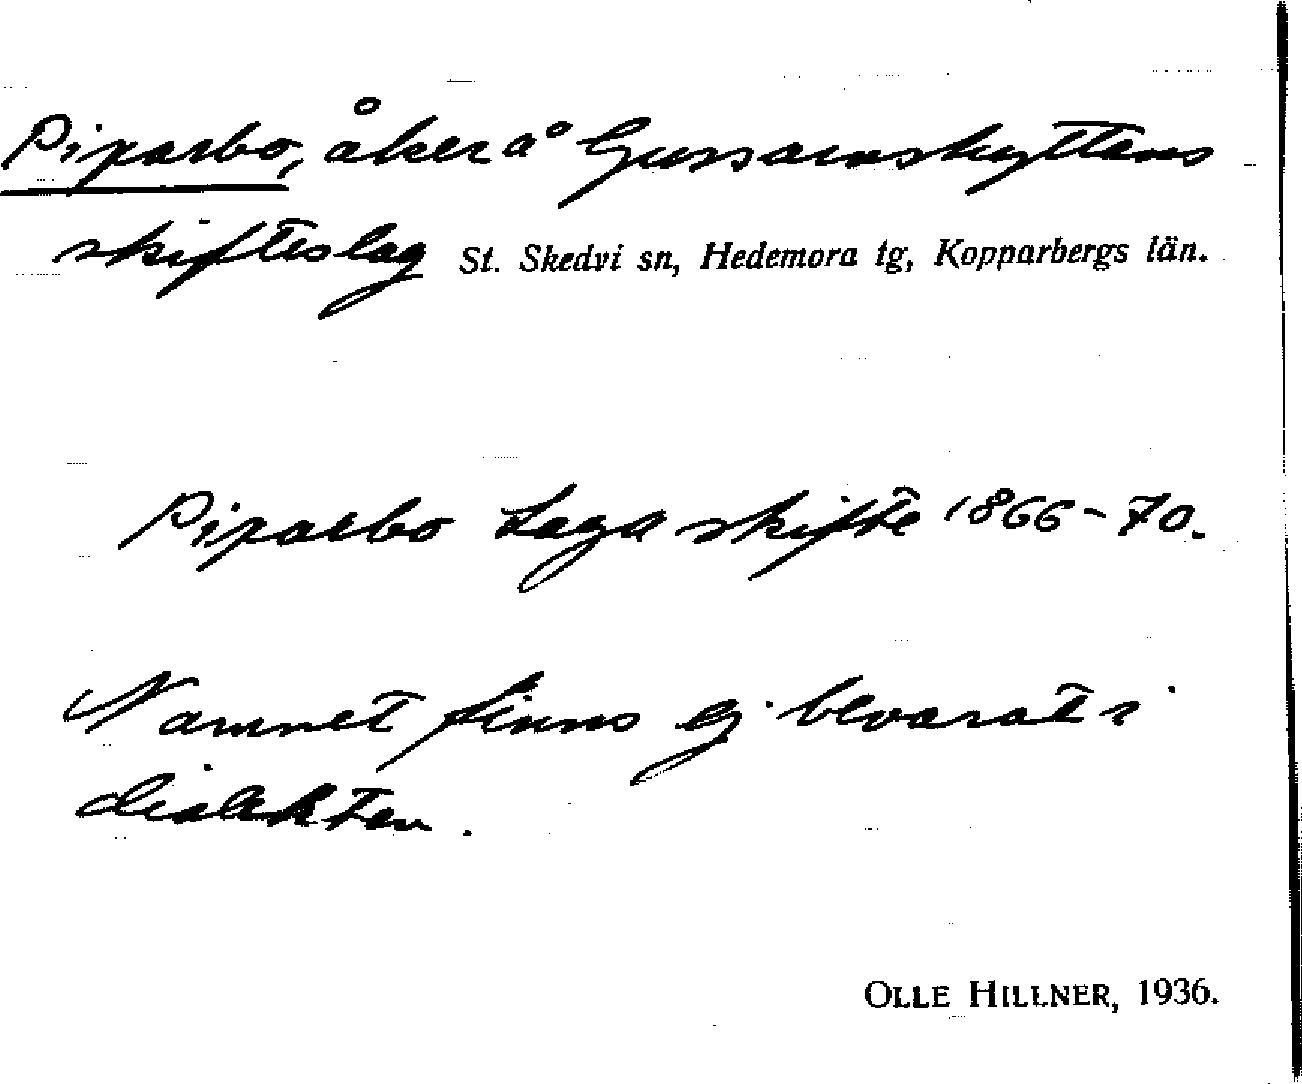 Piparbo, åker å Gussarvshyttans
skifteslag St. Skedvi sn, Hedemora tg, Kopparbergs län.
Piparbo Laga skifte 1866-70.
Namnet finns ej bevarat i
dialekten.
OLLE HILLNER, 1936.